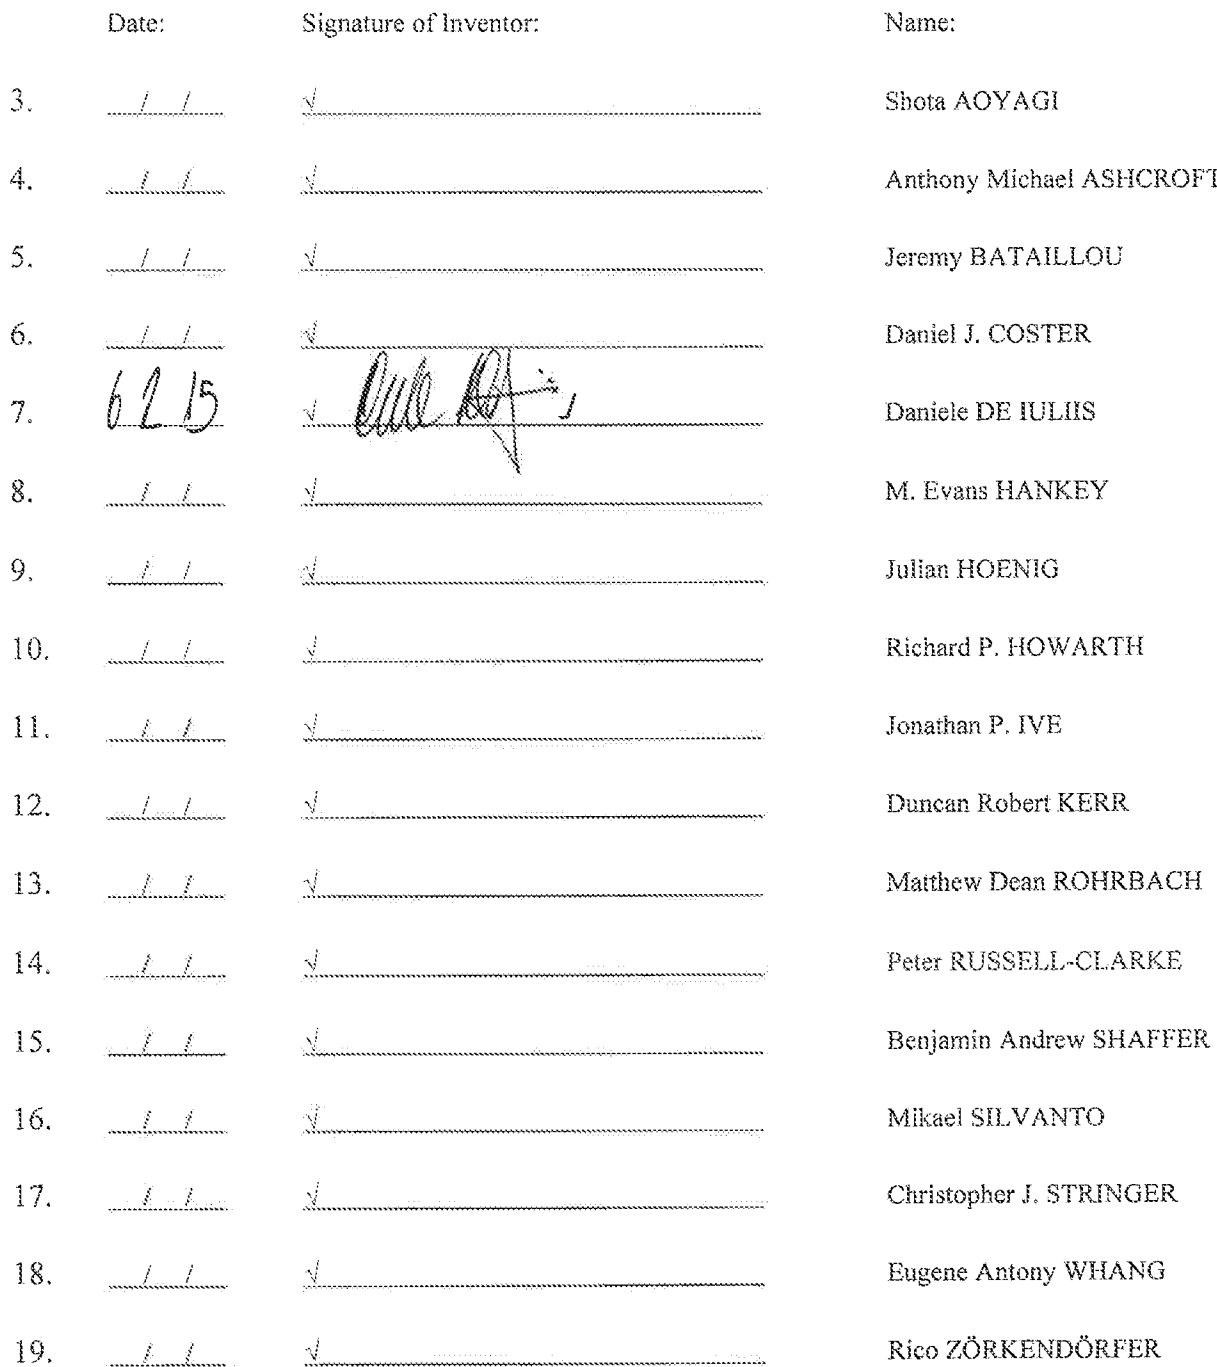 Date: Signature of Inventor: Name:
3. / / √ Shota AOYAGI
4. / / √ Anthony Michael ASHCROFT
5. / / √ Jeremy BATAILLOU
6. / / √ Daniel J. COSTER
7. 6 2 15 √ Daniele DE IULIIS
8. / / √ M. Evans HANKEY
9. / / √ Julian HOENIG
10. / / √ Richard P. HOWARTH
11. / / √ Jonathan P. IVE
12. / / √ Duncan Robert KERR
13. / / √ Matthew Dean ROHRBACH
14. / / √ Peter RUSSELL-CLARKE
15. / / √ Benjamin Andrew SHAFFER
16. / / √ Mikael SILVANTO
17. / / √ Christopher J. STRINGER
18. / / √ Eugene Antony WHANG
19. / / √ Rico ZÖRKENDÖRFER